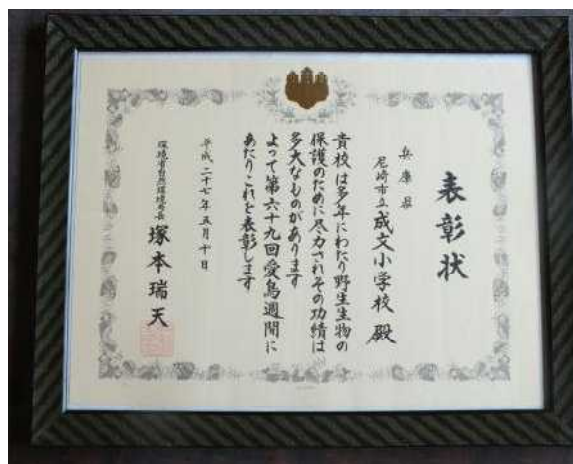 表彰状
兵庫県
尼崎市立成文小学校 殿
貴校は多年にわたり野生生物の
保護のために尽力されその功績は
多大なものがあります
よって第六十九回愛鳥週間に
あたりこれを表彰します
平成二十七年五月十日
環境省自然環境局長 塚本瑞天